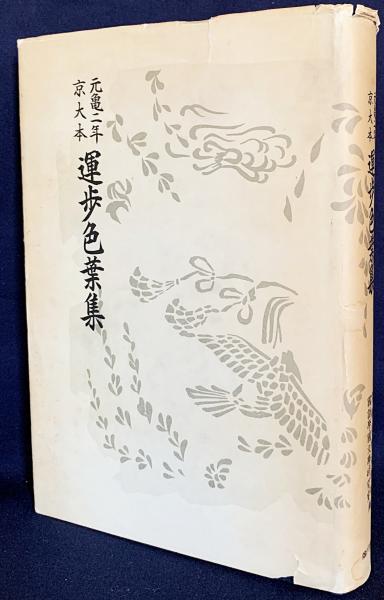 元亀二年
京大本
運歩色葉集
京大本
運歩色葉集